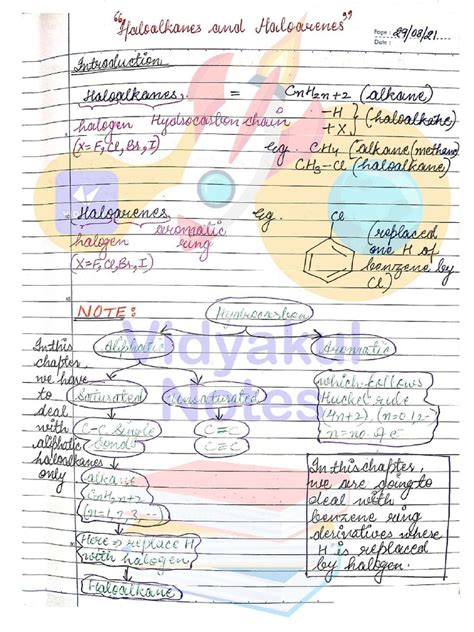 "Haloalkanes and Haloarenes"
Page: 29/08/21
Date:
Introduction
Haloalkanes = CnH2n+2 (alkane)
halogen Hydrocarbon chain
-H
+X
(haloalkane)
(X=F,Cl,Br,I)
eg. CH4 (alkane/methane)
CH3-Cl (haloalkane)
Haloarenes
halogen aromatic ring
(X=F,Cl,Br,I)
Eg.
Cl
(replaced
one H of
benzene by
Cl)
NOTE:
Hydrocarbon
Vidyakul
Notes
Aliphatic
Aromatic
Saturated
Unsaturated
C-C single
bond
C=C
C≡C
which follows
Huckel rule
(4n+2), (n=0,1,2-
In this
chapter
we have
to
deal
with
aliphatic
haloalkanes
only
alkane
CnH2n+2
(n=1,2,3...)
Here => replace H
with halogen
Haloalkane
In this chapter,
we are going to
deal with
benzene ring
derivatives where
H is replaced
by halogen.